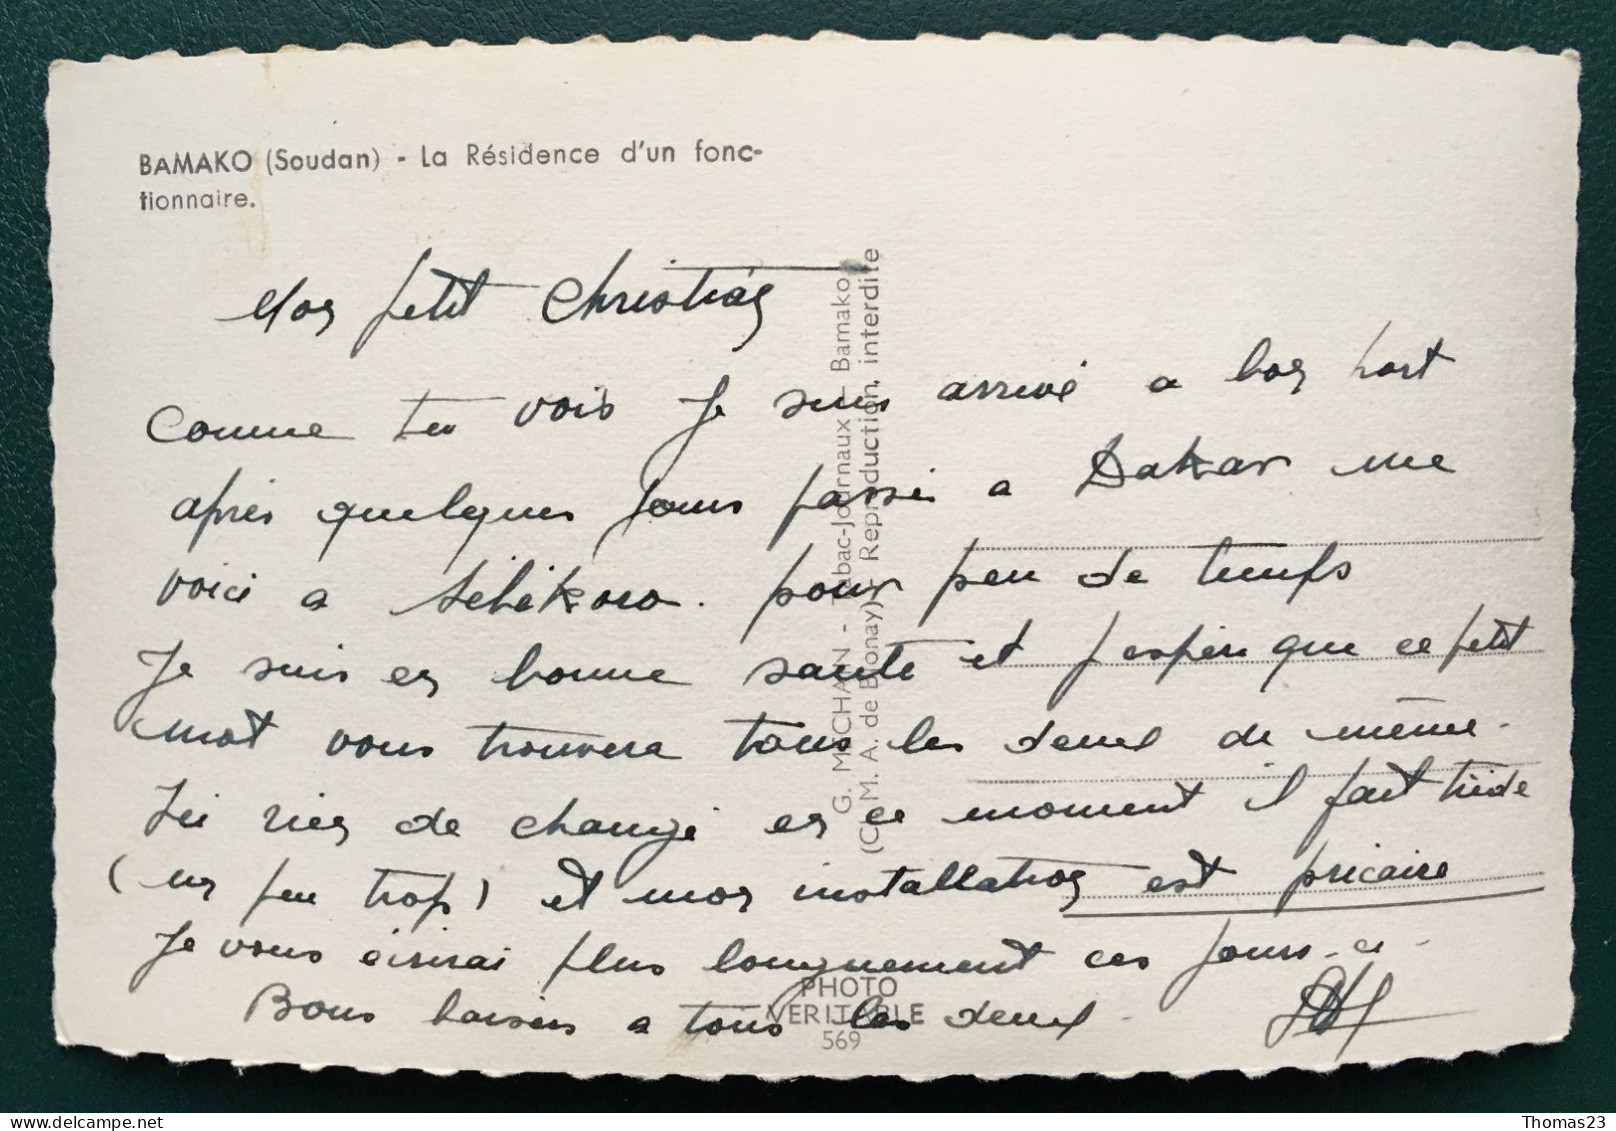 BAMAKO (Soudan) - La Résidence d'un fonc-
tionnaire.
Mon petit Christian
Comme tu vois je suis arrivé a bon port
après quelques jours passé a Dakar me
voici a Sébékoro. pour peu de temps
Je suis en bonne santé et j espère que ce petit
mot vous trouvera tous les deux de même.
Ici rien de changé en ce moment il fait tiède
(un peu trop) et mon installation est précaire
Je vous écrirai plus longuement ces jours-ci.
Bons baisers a tous les deux.
G. MICHAIN - Tabac-Journaux - Bamako
(C. M. A. de Blonay) - Reproduction interdite
PHOTO
VERITABLE
569
Thomas23